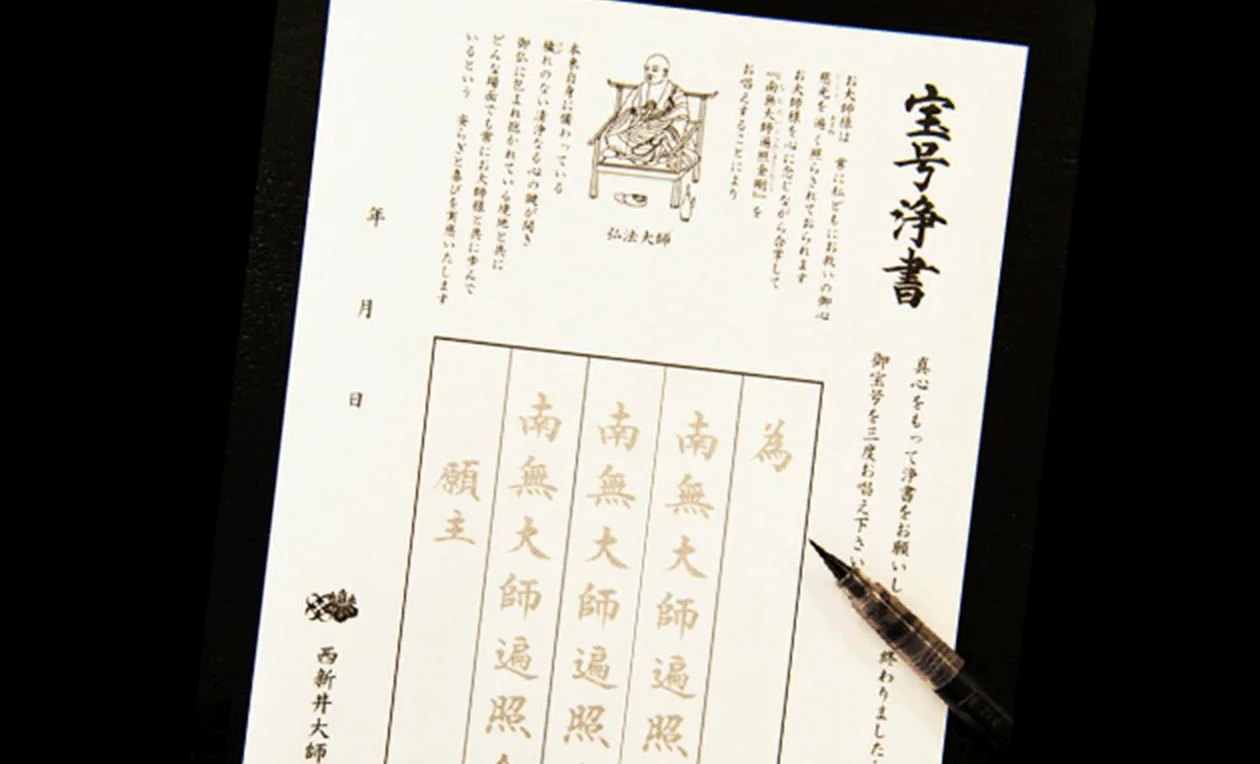 宝号浄書
真心をもって浄書をお願いし
終わりました
御宝号を三度お唱え下さい
お大師様は 常に私どもにお救いの御心
慈光を遍く照らされておられます
お大師様を心に念じながら合掌して
『南無大師遍照金剛』を
お唱えすることにより
弘法大師
本来自身に備わっている
穢れのない清浄なる心の鍵が開き
御仏に包まれ抱かれている境地と共に
どんな場面でも常にお大師様と共に歩んで
いるという 安らぎと喜びを実感いたします
為
南無大師遍照
南無大師遍照
南無大師遍照
願主
年 月 日
西新井大師